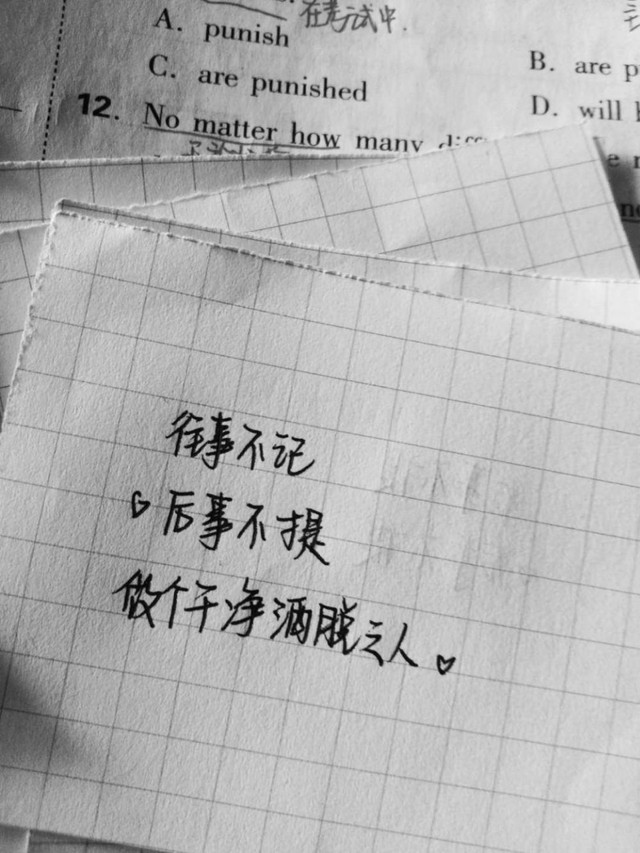 在考试中.
A. punish
B. are p
C. are punished
D. will
12. No matter how many diff
往事不记
后事不提
做个干净洒脱之人